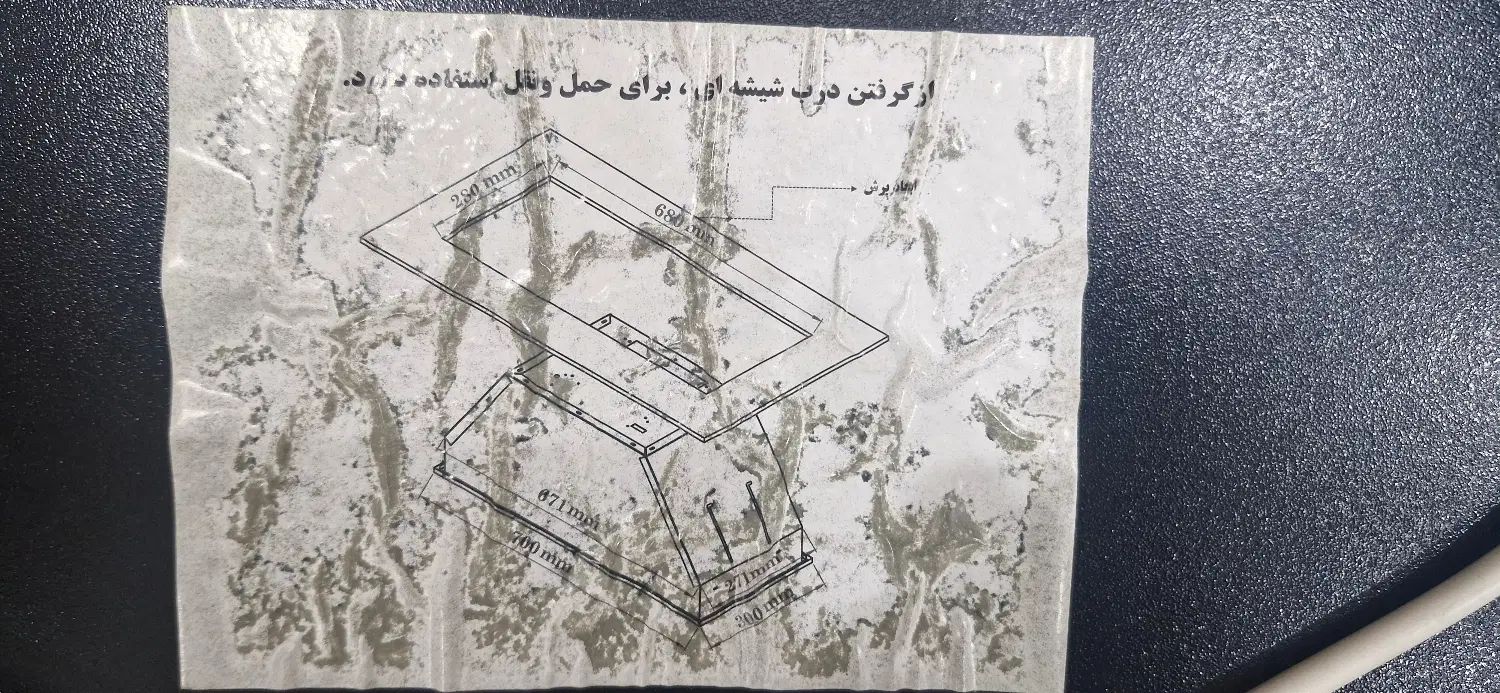 از گرفتن درب شیشه ای ، برای حمل ونقل استفاده دارد.
ابعاد برش
280 mm
680 mm
671 mm
700 mm
271 mm
300 mm